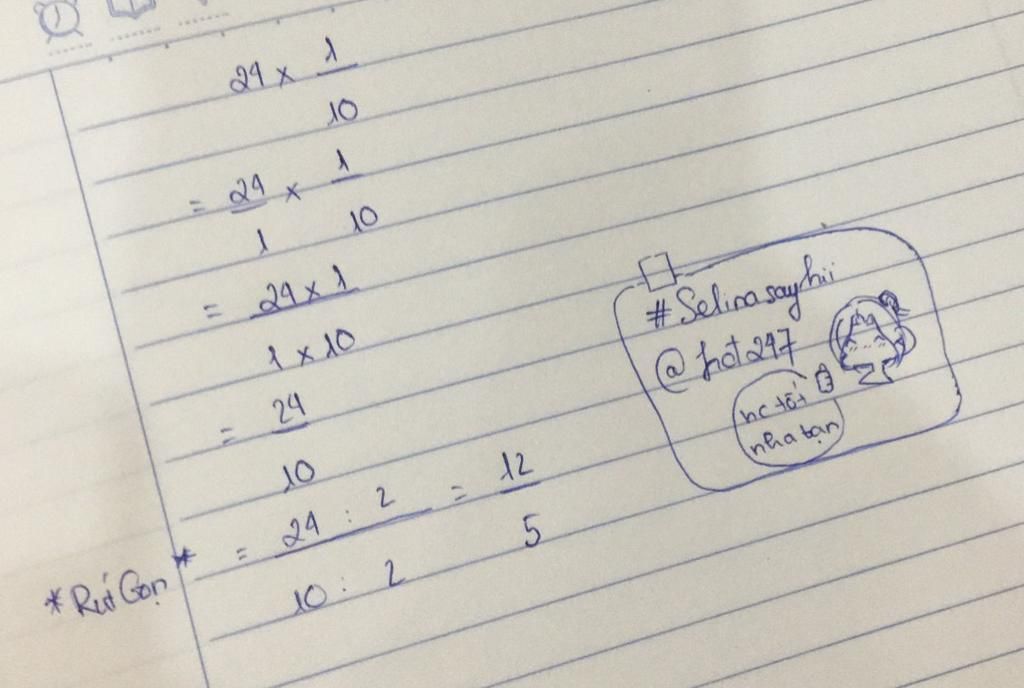 24 × 1
10
= 24 × 1
1 10
= 24 × 1
1 × 10
= 24
10
*Rút Gọn* = 24 : 2 = 12
10 : 2 5
#Selinasayhii
@hot247
hc tốt
nha bạn